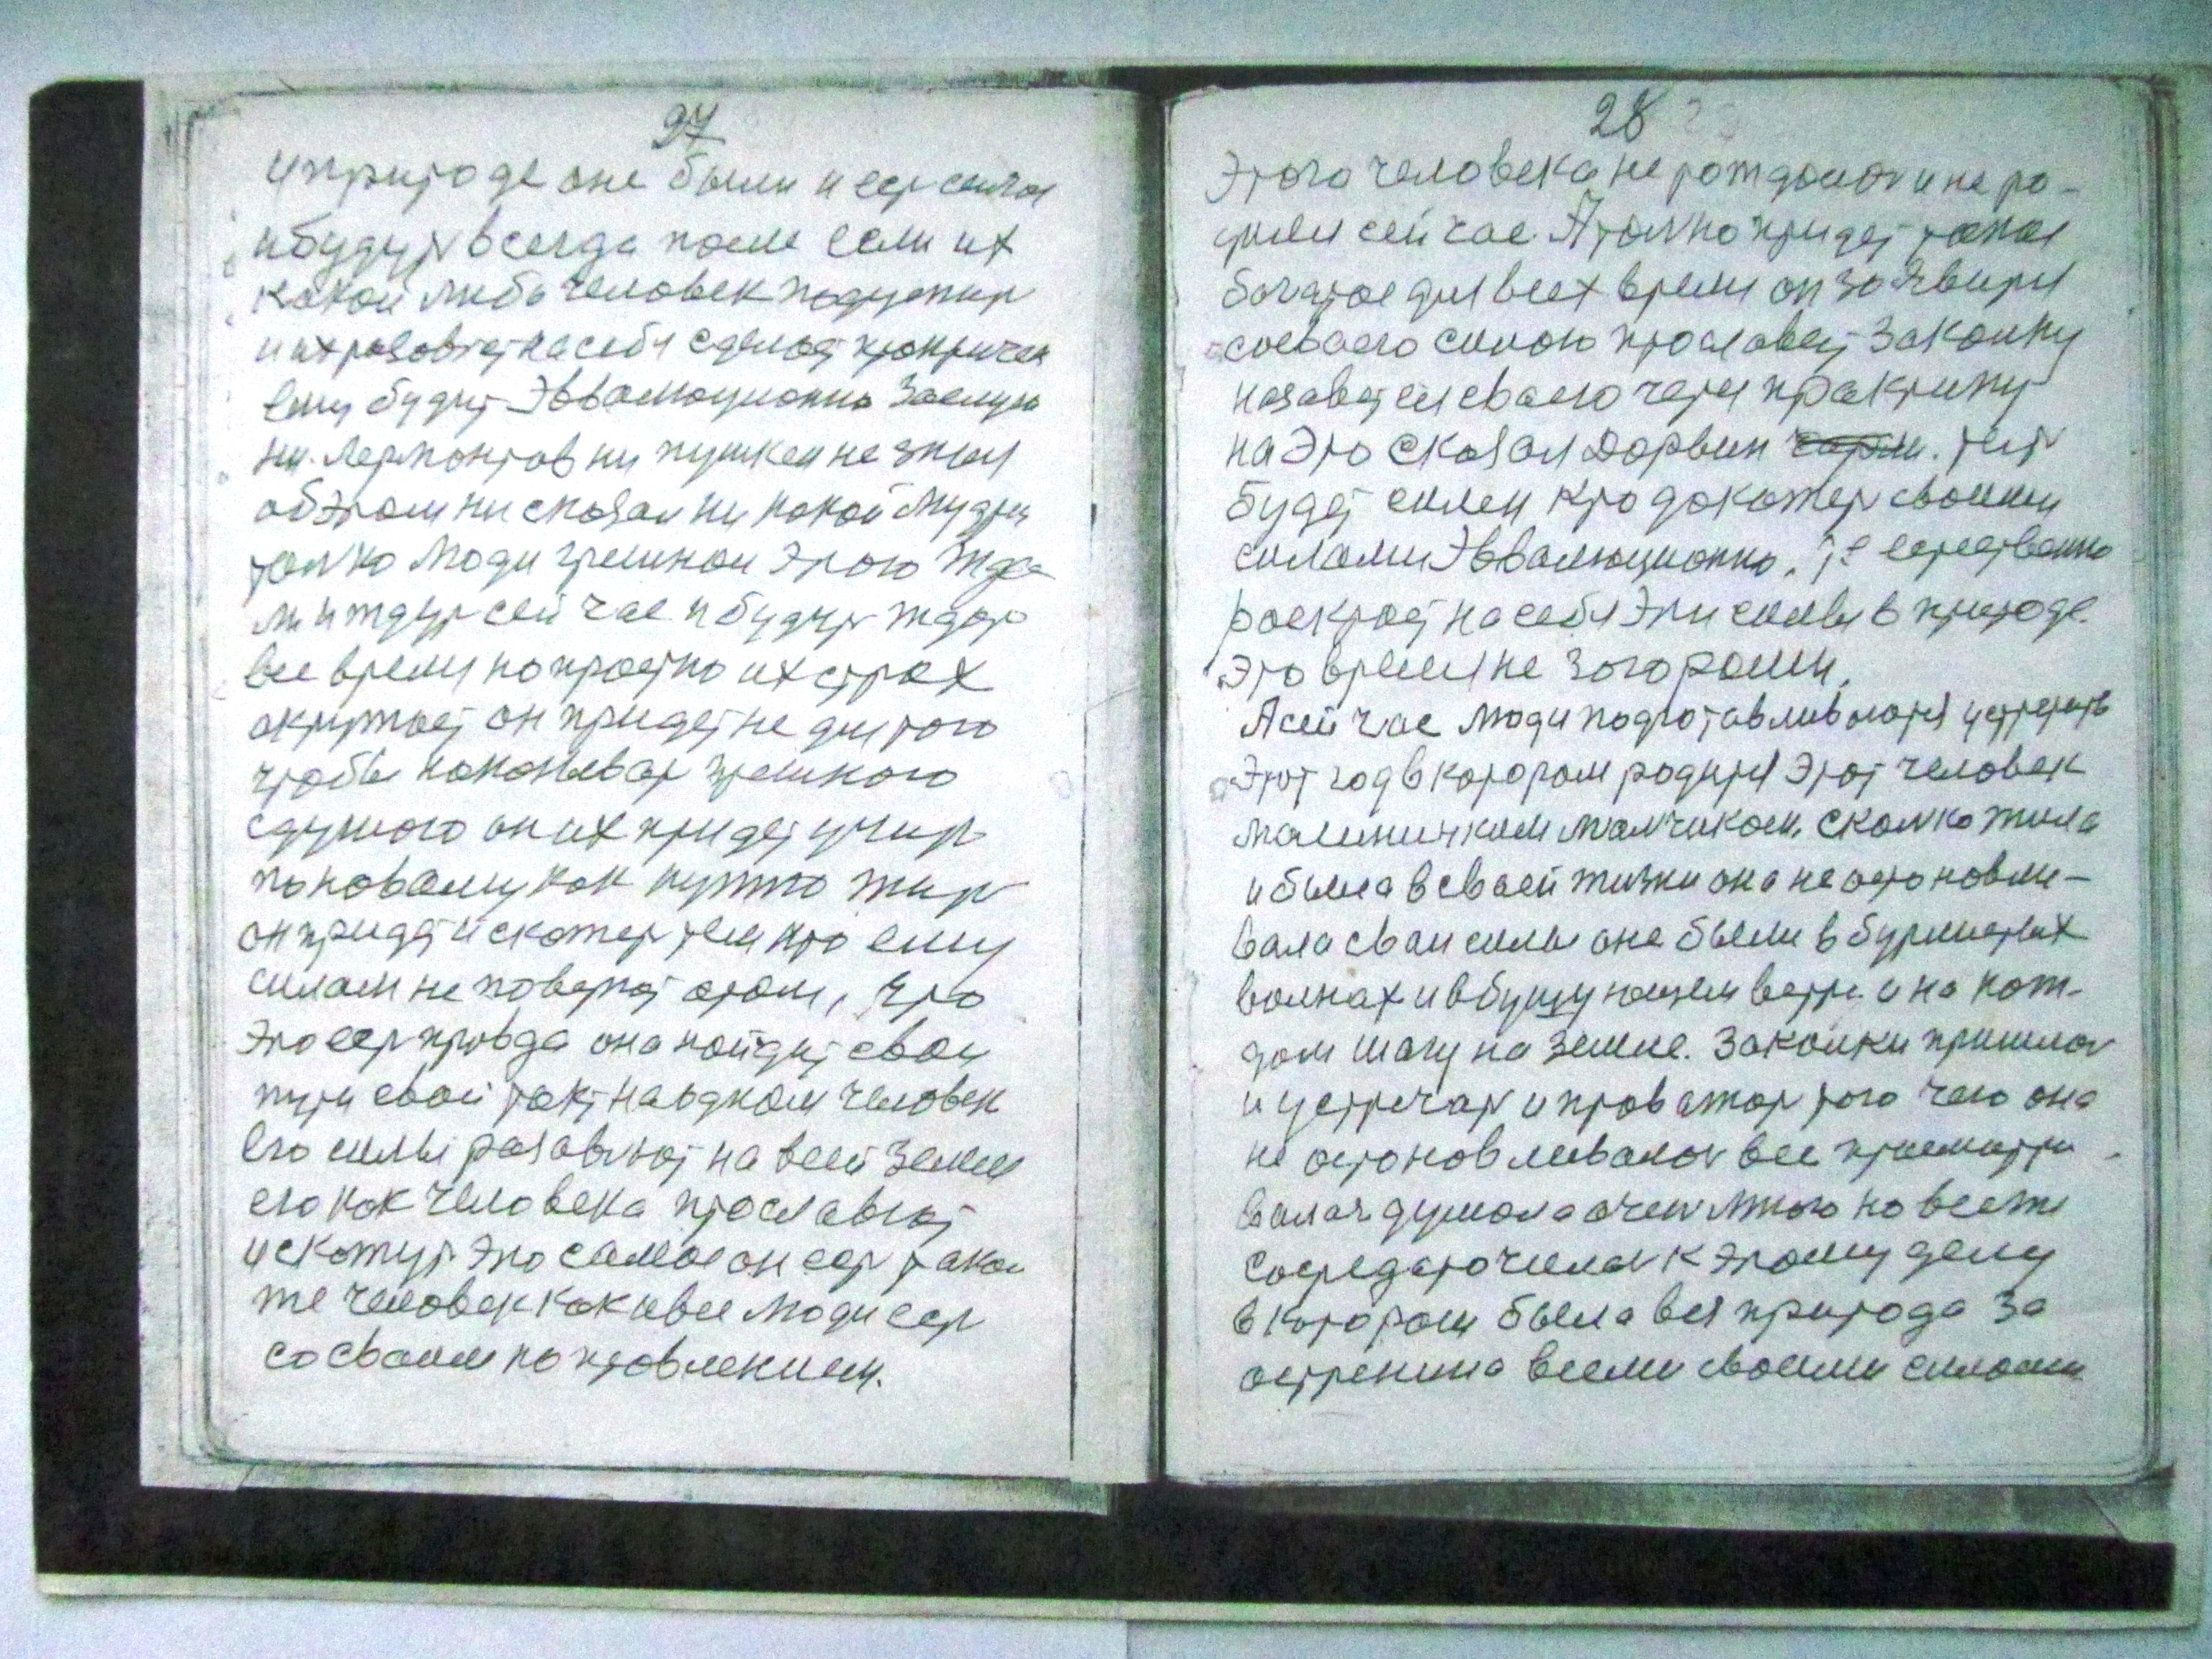 27
у природе оне были и есть сичас
и будуть всегда после если их
какой либо человек получить
и их розовъет на себя сделает практичек
ему будит Эвволюционно заслуга
ни Лермонтов ни пушкен не знал
об этом ни сказал ни какой мудрец
толко люди грешнои этого жда
ли и ждут сей час и будуть ждать
все время но просто их страх
окружает он придет не для того
чтобы наказывать грешного
слушого он их придет учить
по новаму как нужно жить
он придет и скажеть тем кто ему
силам не поверит этом, что
Это есть правда она найдит свои
пути свой такт на одном человек
его силы розавьют на всей земле
его как человека прославют
и скажут это самое он есть такои
же человек как и все люди есть
со сваим поправлением.
28
Этого человека не рождалось и не ро-
дился сей час. А толко придет такое
богатое для всех время он зоявится
соеваего силою прославет законну
назавет ея сваего черя практику
на Это сказал Дорвин тот
будет силен кто докажеть своими
силами Эвволюционно, т.е естественно
роскроет на себя Эти силы в природе.
Это время не зогороми.
А сей час люди подготавливаются устретить
Этот год в котором родится Этот человек
малиничким малчиком. сколко жила
и была в сваей жизни она не астоновли-
вала сваи силы оне были в бурлистых
волнах и в бушующем ветре и на каж-
дом шагу на земле. законки пришлось
и устречать и проважать того чего она
не остоновливалась все присматри
валась думала очень много но все же
сосредаточилась к этому делу
в котором была вся природа за
острениа всеми своими силами